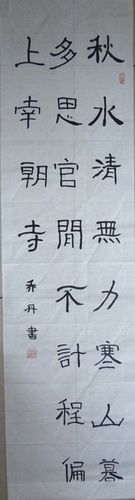 秋水清無力寒山暮
多思官閒不計程偏
上幸朝寺
乔丹書